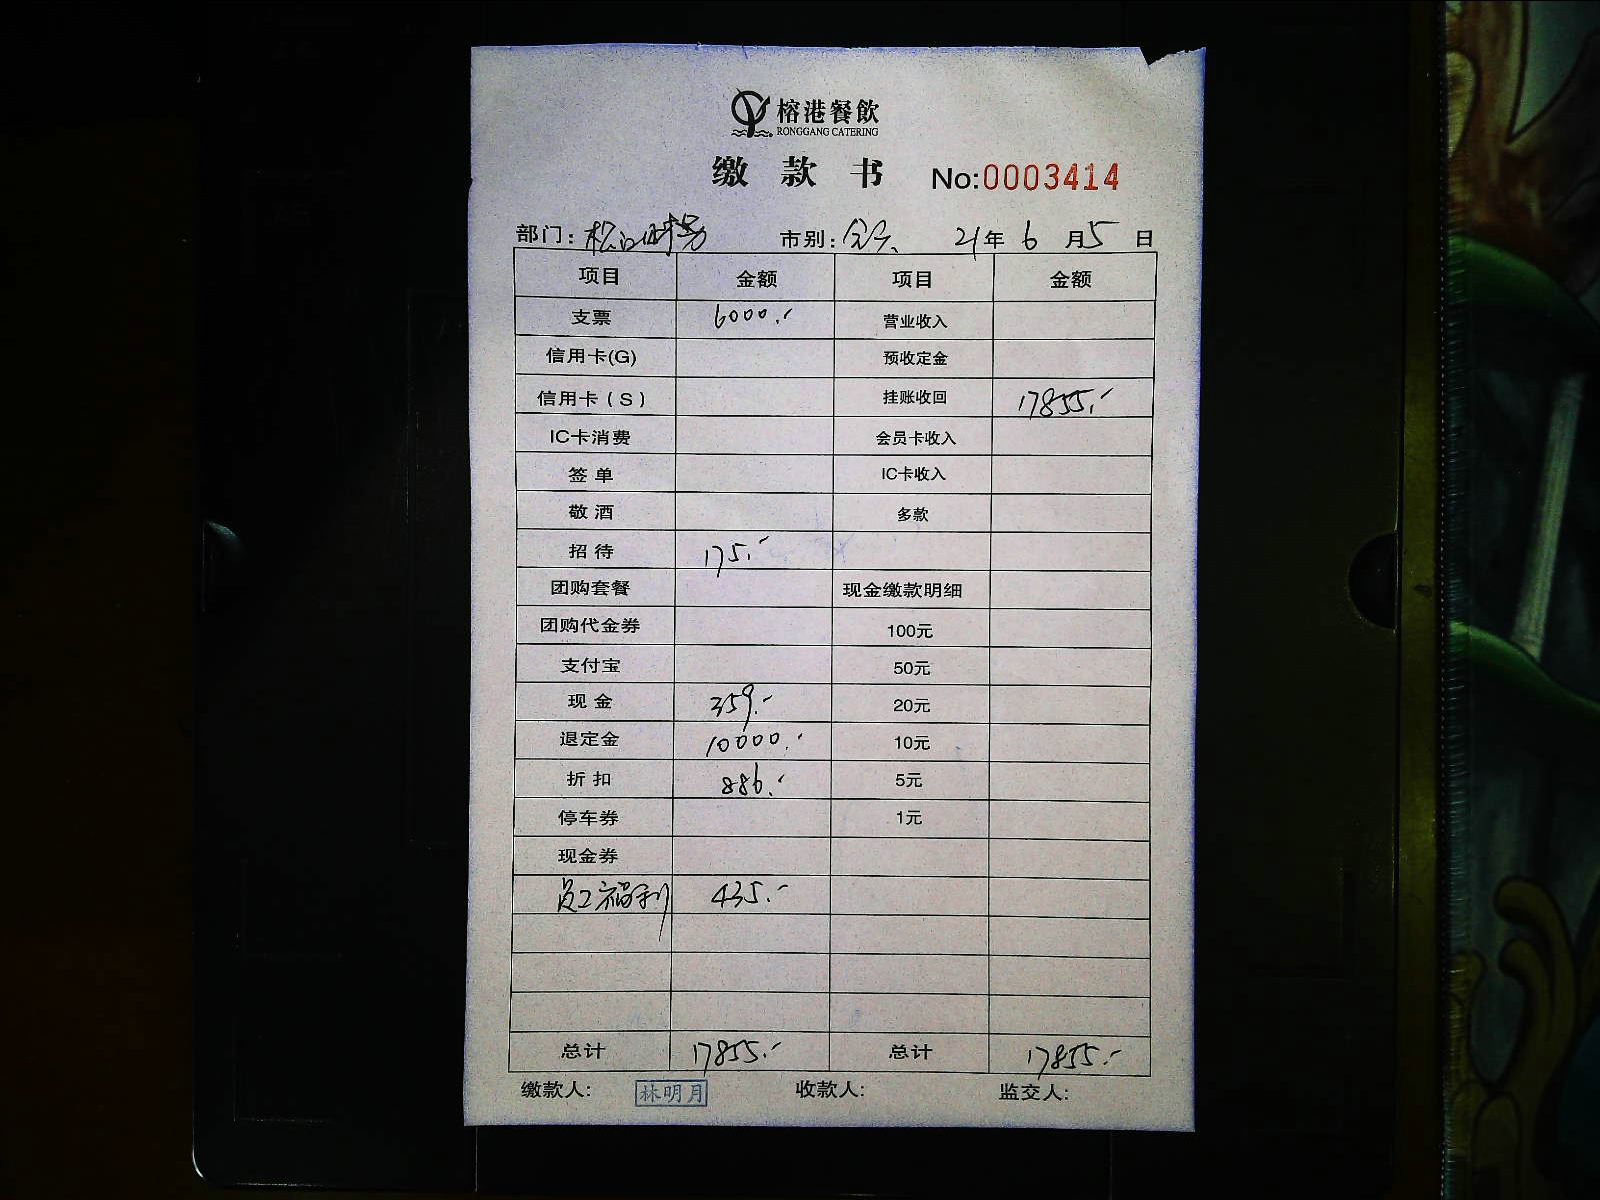 榕港餐飲
RONGGANG CATERING
缴款书 No:0003414
部门: 松江 市别: 21年 6月 5日
项目 金额 项目 金额
支票 6000.- 营业收入
信用卡(G) 预收定金
信用卡(S) 挂账收回 17855.-
IC卡消费 会员卡收入
签单 IC卡收入
敬酒 多款
招待 175.-
团购套餐 现金缴款明细
团购代金券 100元
支付宝 50元
现金 359.- 20元
退定金 10000.- 10元
折扣 886.- 5元
停车券 1元
现金券
员工福利 435.-
总计 17855.- 总计 17855.-
缴款人: 林明月 收款人: 监交人: